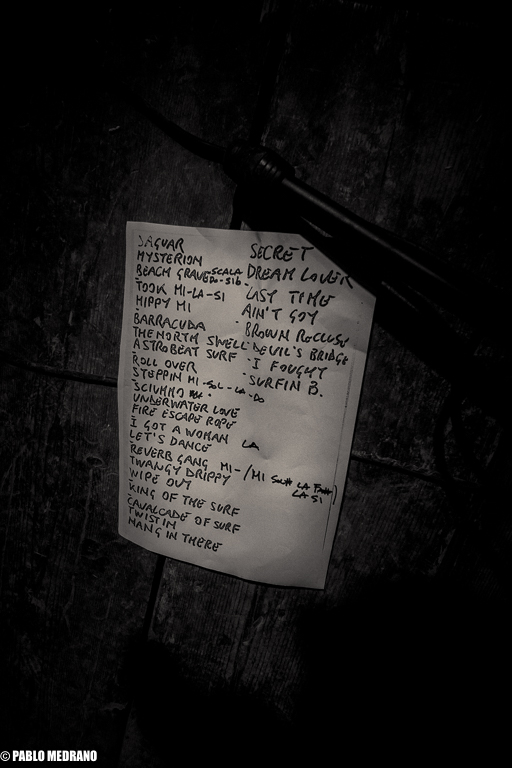 JAGUAR
MYSTERION
BEACH GRAVE-SCALA DO-SIB
TOOK MI-LA-SI
HIPPY MI
BARRACUDA
THE NORTH SWELL
ASTROBEAT SURF
ROLL OVER
STEPPIN MI-SOL-LA-DO
UNDERWATER LOVE
FIRE ESCAPE ROPE
I GOT A WOMAN LA
LET'S DANCE
REVERB GANG MI-/MI
LA SI
TWANGY DRIPPY
WIPE OUT
KING OF THE SURF
CAVALCADE OF SURF
TWISTIN
HANG IN THERE
SECRET
DREAM LOVER
LAST TIME
AIN'T GOT
BROWN RECLUSE
DEVIL'S BRIDGE
I FOUGHT
SURFIN B.
© PABLO MEDRANO